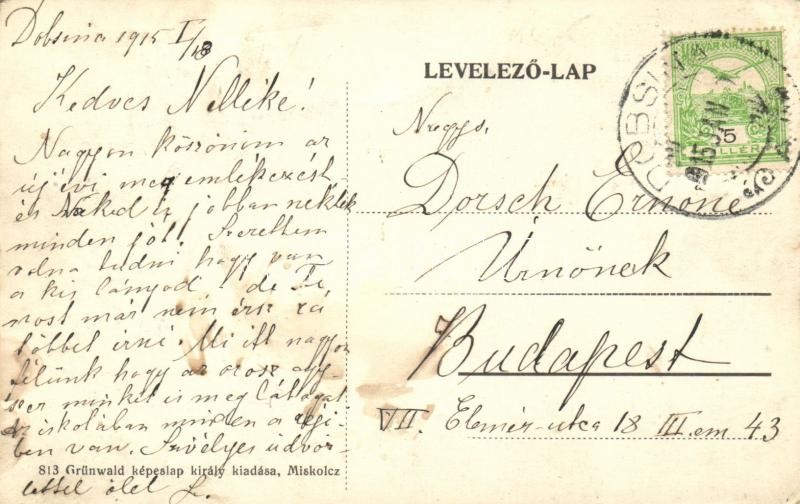 Dobsina 1915 I/18
Kedves Nelléke!
Nagyon köszönöm az
új évi megemlékezést
és Neked is jobban nektek
minden jót. Szerettem
volna tudni hogy van
a kis lányod - de Te
most már nem érsz rá
többet irni. Mi itt nagyon
félünk hogy az orosz egy-
szer minket is meg látogat
az iskolában minden a régi-
ben van. Szivélyes üdvöz-
lettel ölel L.
813 Grünwald képeslap király kiadása, Miskolcz
LEVELEZŐ-LAP
MAGYAR KIR.
5
FILLÉR
DOBSINA
915 JAN
Nagys.
Dorsch Ernőné
Úrnőnek
Budapest
VII. Elemér-utca 18 III. em 43